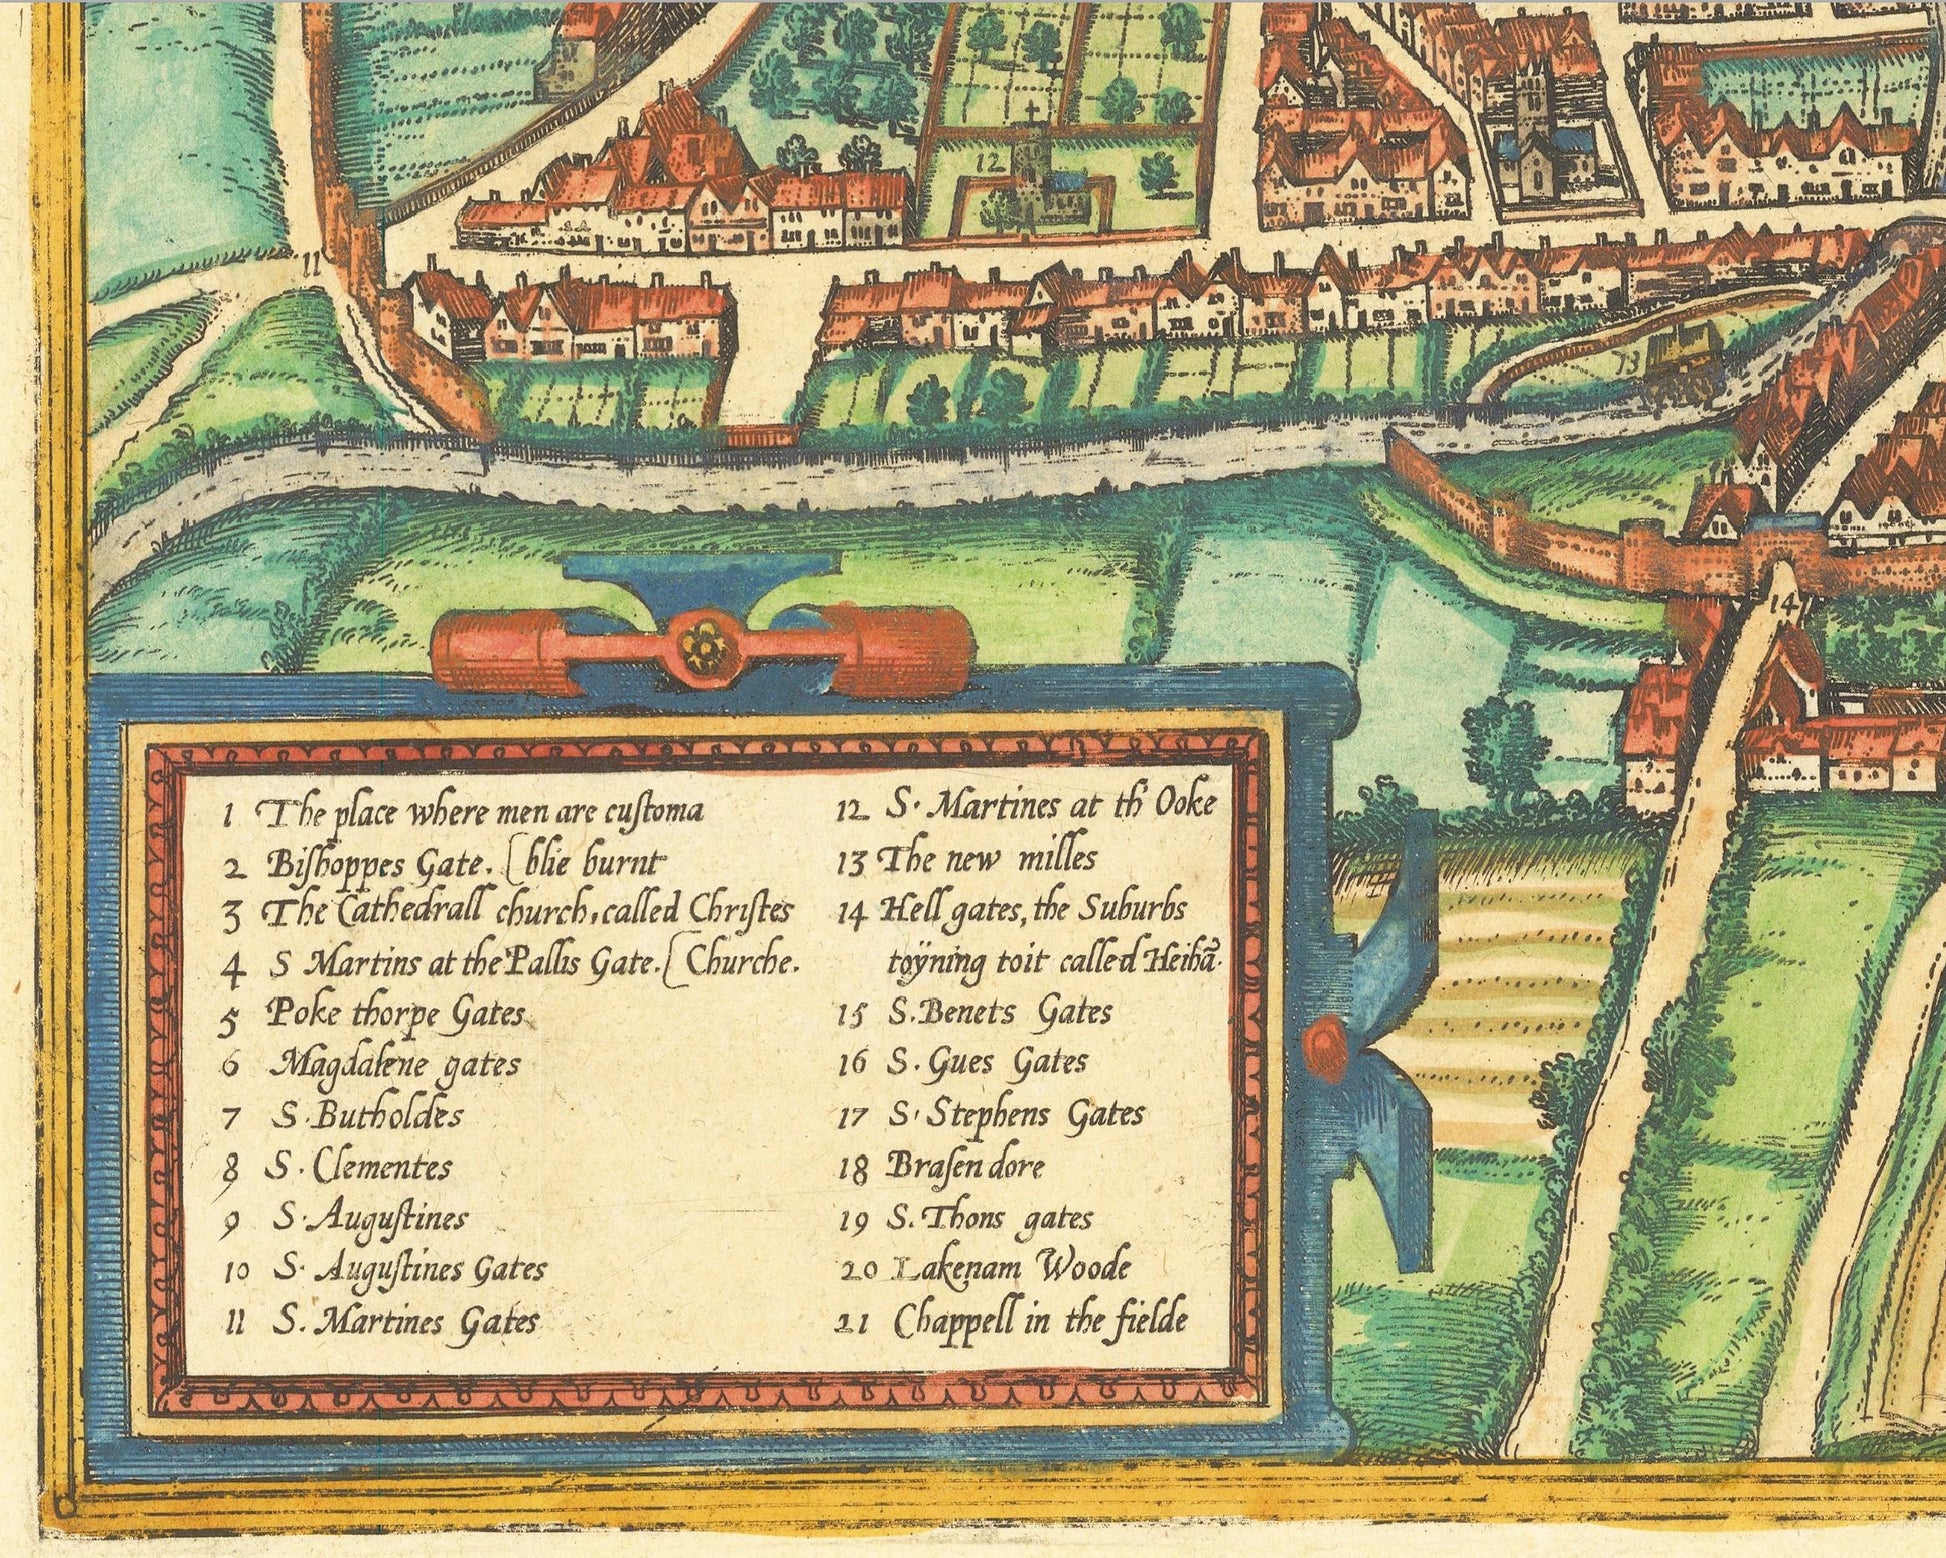 12
11
73
14
1 The place where men are cuſtoma
2 Biſhoppes Gate. [blie burnt
3 The Cathedrall church, called Chriſtes
4 S Martins at the Pallis Gate. [Churche.
5 Poke thorpe Gates
6 Magdalene gates
7 S. Butholdes
8 S. Clementes
9 S. Auguſtines
10 S. Auguſtines Gates
11 S. Martines Gates
12 S. Martines at th Ooke
13 The new milles
14 Hell gates, the Suburbs
toÿning toit called Heibã.
15 S. Benets Gates
16 S. Gues Gates
17 S. Stephens Gates
18 Braſen dore
19 S. Thons gates
20 Lakenam Woode
21 Chappell in the fielde